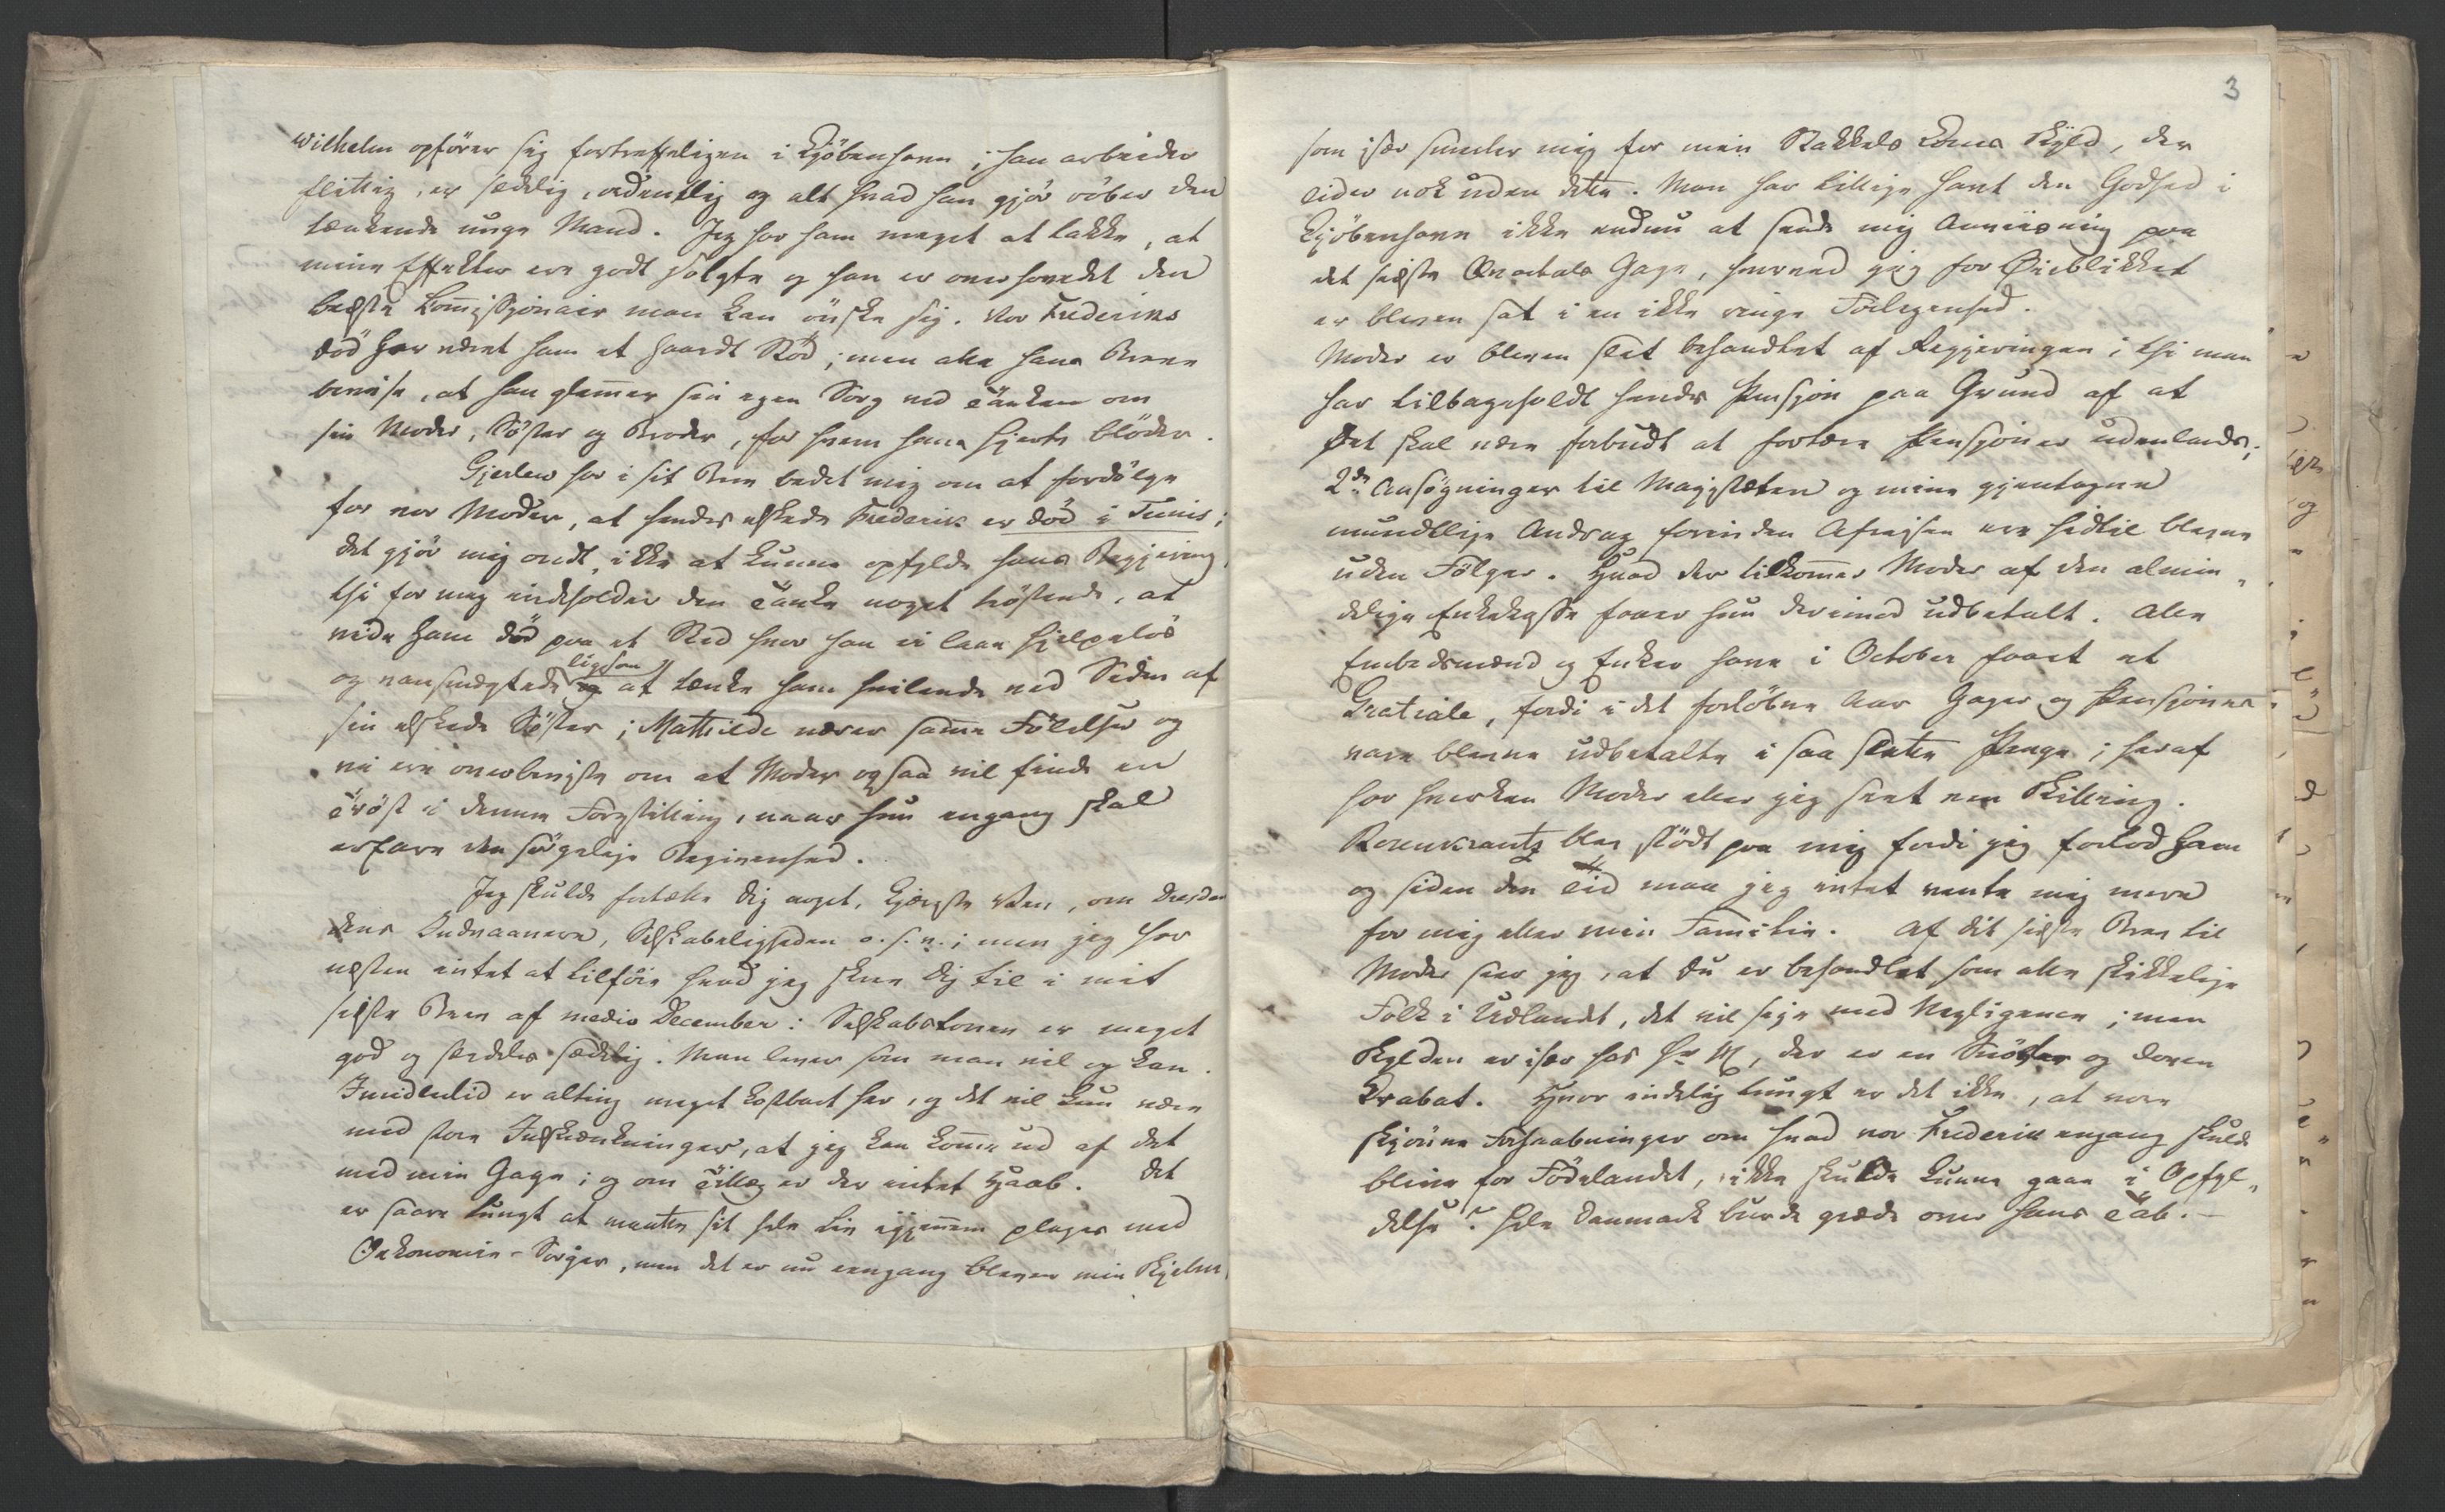 Wilhelm opfører sig fortreffeligen i Kjöbenhavn; han arbeider
flittig, er sædelig, ordentlig og alt hvad han gjör röber den
tænkende unge Mand. Jeg har ham meget at takke, at
mine Effekter ere godt solgte og han er overhovedet den
beste Kommissjonair man kan önske sig. Vor Frederiks
död har været ham et haardt Stöd; men alle hans Breve
bevise, at han glemmer sin egen Sorg ved Tanken om
sin Moder, Söster og Broder, for hvem hans hjerte blöder.
Gjerlew har i sit Brev bedet mig om at fordölge
for vor Moder, at hendes elskede Frederik er död i Tunis;
det gjör mig ondt, ikke at kunne opfylde hans Begjering,
thi for mig indeholder den Tanke noget tröstende, at
vide ham död paa et Sted hvor han ei laae hjelpelös
og vansmægtede ligesom at tænke ham hvilende ved Siden af
sin elskede Söster; Mathilde nærer samme Fölelser og
vi ere overbeviste om at Moder ogsaa vil finde en
Tröst i denne Forestilling, naar hun engang skal
erfare den sörgelige Begivenhed.
Jeg skulde fortælle dig noget, kjæreste Ven, om Dresden
dens Indvaanere, Selskabeligheden o. s. v.; men jeg har
næsten intet at tilföie hvad jeg skrev dig til i mit
sidste Brev af medio December: Selskabstonen er meget
god og særdeles sædelig. Man lever som man vil og kan.
Imidlertid er alting meget kostbart her, og det vil kun være
med store Indskrænkninger, at jeg kan komme ud af det
med min Gage; og om Tillæg er der intet Haab. Det
er saare tungt at maatte sit hele Liv igjennem plages med
Oekonomie-Sorger, men det er nu eengang bleven min Skjebne,
3
som især smerter mig for min Stakkels Kones Skyld, der
lider nok uden dette. Man har tillige havt den Godhed i
Kjöbenhavn ikke endnu at sende mig Anviisning paa
det sidste Qvartals Gage, hvorved jeg for Øieblikket
er bleven sat i en ikke ringe Forlegenhed.
Moder er bleven slet behandlet af Regjeringen; thi man
har tilbageholdt hendes Pensjon paa Grund af at
det skal være forbudt at fortære Pensjoner udenlands;
2de Ansögninger til Majestæten og mine gjentagne
mundtlige Andrag forinden Afreisen ere hidtil blevne
uden Fölger. Hvad der tilkommer Moder af den almin-
delige Enkekasse faaer hun derimod udbetalt. Alle
Embedsmænd og Enker have i October faaet et
Gratiale, fordi i det forlöbne Aar Gager og Pensjoner
vare blevne udbetalte i saa slette Penge; heraf
har hverken Moder eller jeg seet een Skilling.
Rosenkrantz blev stödt paa mig fordi jeg forlod ham
og siden den Tid maa jeg intet vente mig mere
for mig eller min Familie. Af dit sidste Brev til
Moder seer jeg, at du er behandlet som alle skikkelige
Folk i Udlandet, det vil sige med Negligence; men
Skylden er især hos Hr M, der er en og doven
Krabat. Hvor inderlig tungt er det ikke, at vore
skjönne Forhaabninger om hvad vor Frederik engang skulde
blive for Födelandet, ikke skulde kunne gaae i Opfyl-
delse? Hele Danmark burde græde over hans Tab. -